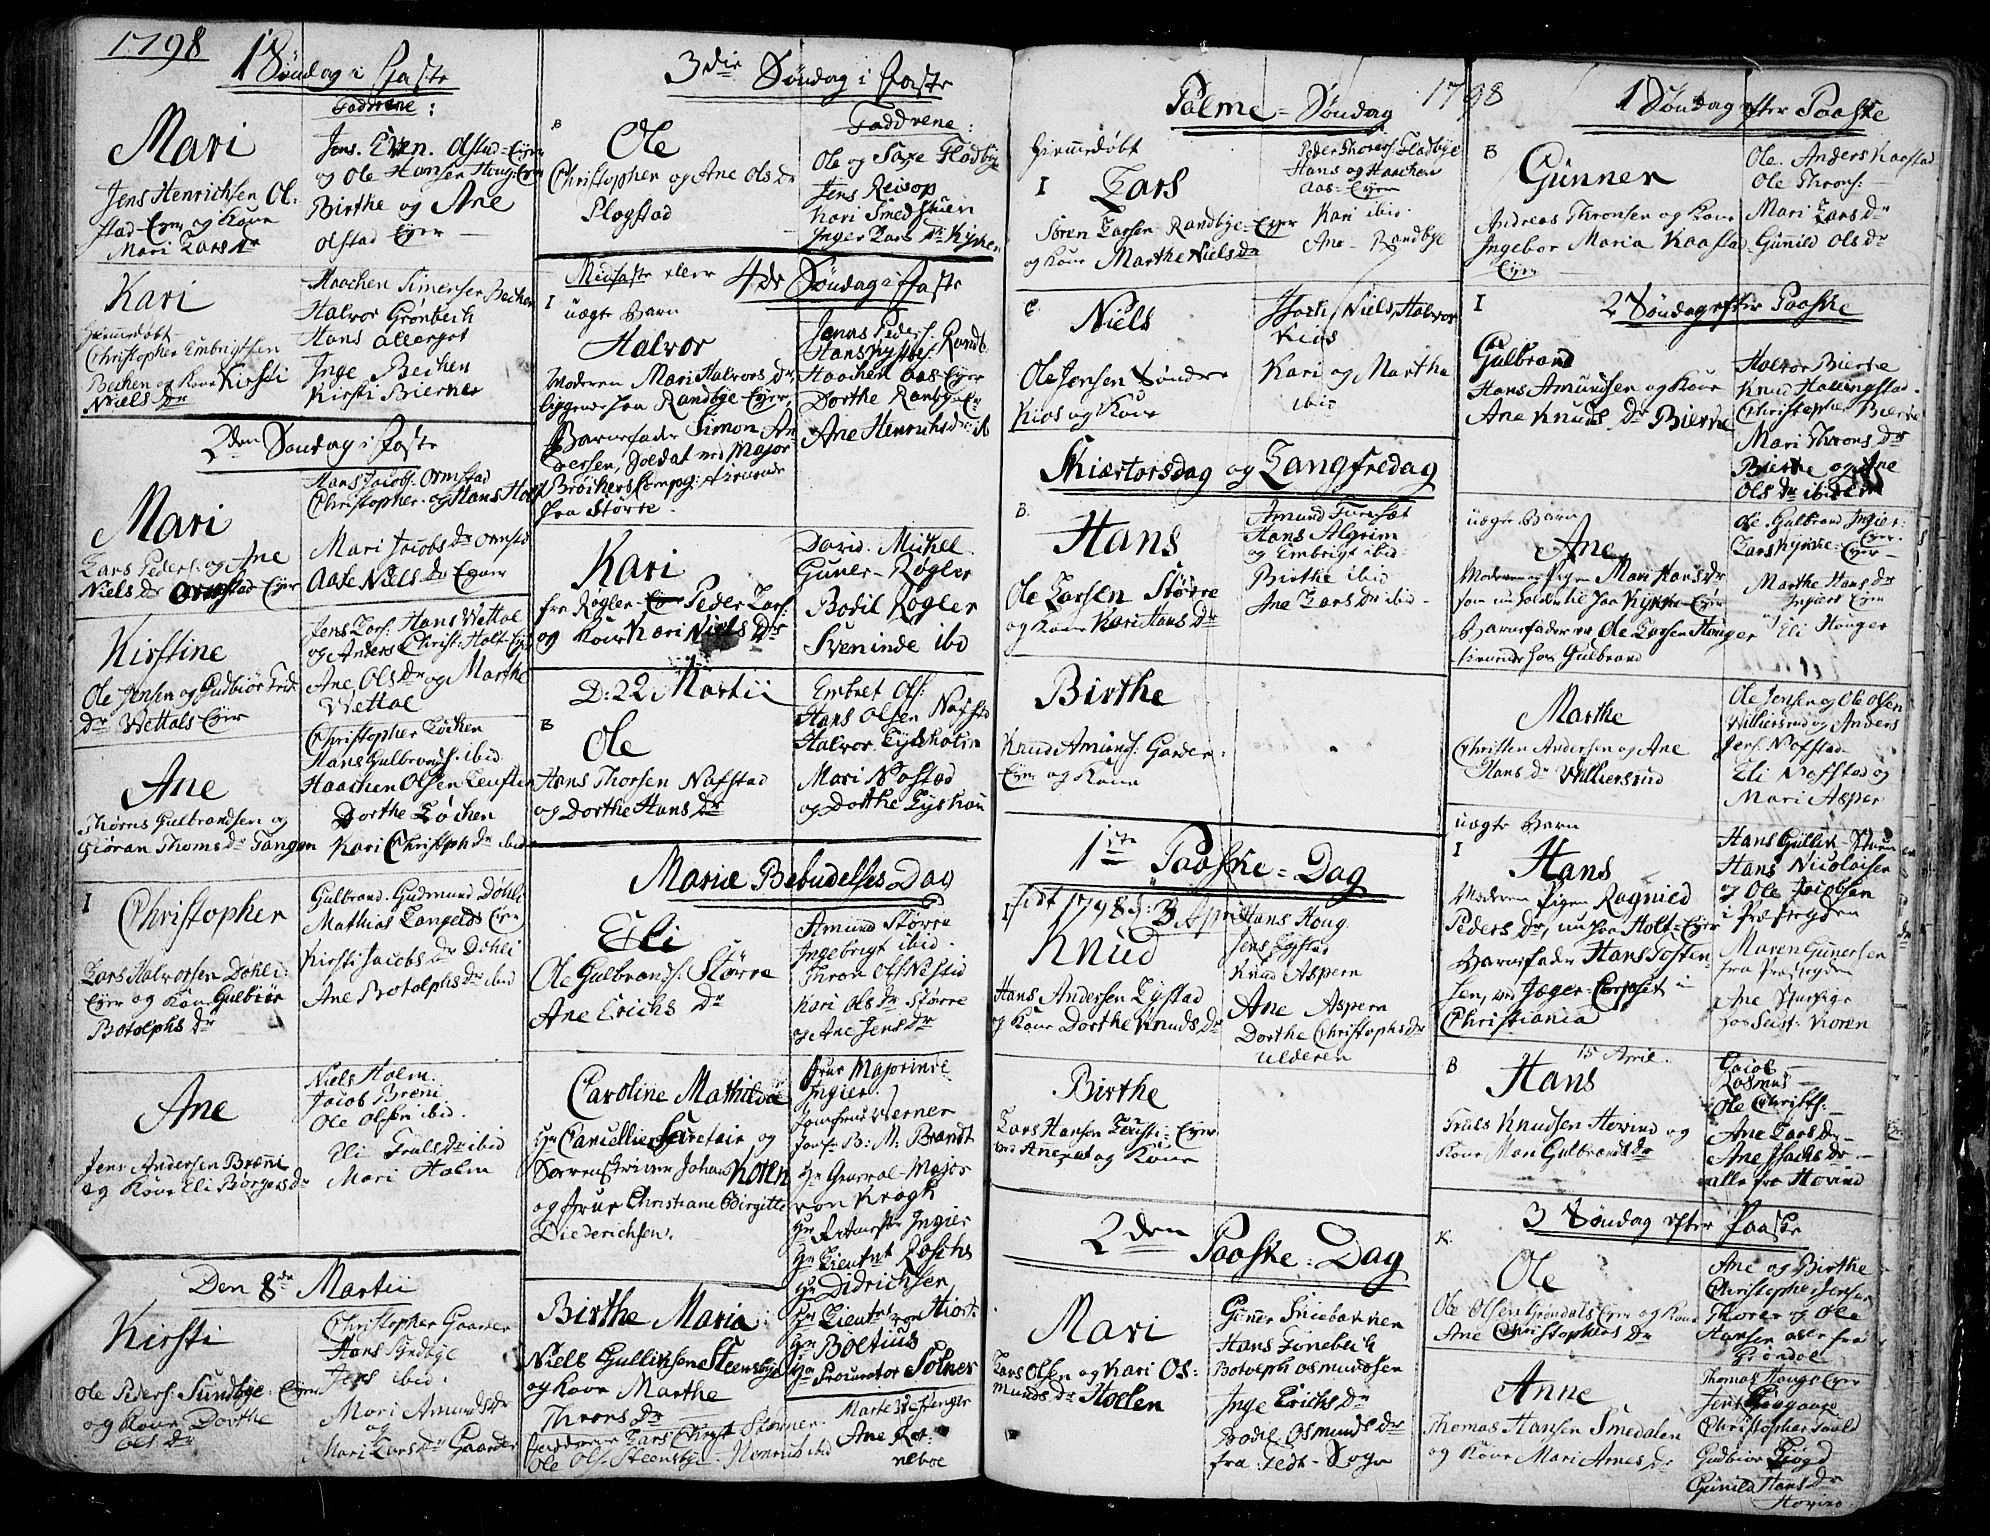 1798
1 Søndag i Faste
Mari
Jens Henrichsen Ol-
stad-Eyer og Kone
Mari Larsdr
Faddrene:
Jens. Even. Olstad-Eyer
og Ole Hansen Houg-Eyer
Birthe og Ane
Olstad Eyer
Kari
hiemedøbt
Christopher Embrigtsen
Bechen og Kone Kirsti
Niels dr
Haachen Simensen Bechen
Halvor Grønbech
Hans
Inge Bechen
Kirsti Bierche
2den Søndag i Faste
Mari
Lars Peders. og Ane
Niels dr Ornstad Eyer
Hans Jacobs. Ornstad
Christopher og Hans Holt
Mari Jacobs dr Ornstad
Aase Niels dr Eyer
Kirstine
Ole Jensen og Gudbiør
dr Wettals Eyer
Jens Lars: Hans Wettal
og Anders Christ: Holt-Eyer
Ane Ols dr og Marthe
Wettal
Ane
Thorns Gulbrandsen og
Giøran Thoms dr Tangen
Christopher Løchen
Hans Gulbrands. ibid.
Haachen Olsen
Dorthe Løchen
Kari Christoph dr ibid
I
Christopher
Lars Halvorsen Døhli-
Eyer og Kone Gulbiør
Botolphs dr
Gulbrand. Gudmund Døhli
Mathias Langelds Eyer
Kirsti Jacobs dr Døhli
Ane Botolphs dr ibid
Ane
Jens Andersen Bræni
og Kone Eli Børgers dr
Niels Holm.
Jacob Bræni
Ole Olsen ibid.
Eli Truls dr ibid
Mari Holm
Den 8de Martii
Kirsti
Ole Peders. Sundbye-Eyer
og Kone Dorthe
Ols dr
Christopher Gaarder
Hans Sundbye
Jens ibid.
Mari Amunds dr
og
Mari Lars dr Gaarder
3die Søndag i Faste
B
Ole
Christopher og Ane Ols dr
Plogstad
Faddrene:
Ole og Saxe Fladbye
Jens Reisop
Kari Smedstuen
Inger Lars dr Kykken
Midfaste eller 4de Søndag i Faste
I
uægte Barn
Halvor
Moderen Mari Halvors dr,
liggende paa Randbye Eyer,
Barnefader Simon An-
dersen, Soldat ved Major
Bröckers Compg: tienende
paa Større.
Jonas Peders. Randb.
Hans Kykke: Randb.
Haachen Aas-Eyer
Dorthe Randbye-Er
Ane Henrichs dr ib
Kari
fra Røgler- Peder Lars.
og Kone Kari Niels dr
David. Michel.
Guner- Røgler
Bodil Røgler
Sveninde ibid
D: 22 Martii
B
Ole
Hans Thorsen Nafstad
og Dorthe Hans dr
Embret Ols:
Hans Olsen Nafstad
Halvor
Mari Nafstad
og Dorthe
Mariæ Bebudelses Dag
Eli
Ole Gulbrands. Større
Ane Erichs dr
Amund Større
Ingebrigt ibid.
Thron Ols
Kari Ols dr Større
og Ane Jens dr
Caroline Mathilde
Hr Cancellie Secretair og
Sorrenskriver Johan Koren
og Frue Christiane Birgitte
Diederichsen.
Frue Majorinde
Ingier.
Jomfrue Werner
Jomf. B: M: Brandt
Hr General-Major
von Kragh
Hr Ritmester Ingier
Hr Lieutnt
Hr Didrichsen
Hr Lieutnt von Hiort
Hr Boltius
Hr Procurator Solner
Birthe Maria
Niels Gulliksen Steensbye
og Kone Marthe
Throns dr
Faddrene Lars Christ Størner.
Ole Ols. Steensbye. Henrich ibid
Marte
Ane Kor-
neboe
Palme-Søndag
1798
hiemedøbt
I
Lars
Søren Larsen Randbye-Eyer
og Kone Marthe Niels dr
Peder Thorers Fladbye
Hans og Haachen
Aas-Eyer
Kari ibid.
Ane Randbye
E.
Niels
Ole Jensen Søndre
Kios og Kone
Isach, Niels, Halvor
Kios
Kari og Marthe
ibid
Skiærtorsdag og Langfredag
B.
Hans
Ole Larsen Større
og Kone Kari Hans dr
Amund Furesæt
Hans Algrim
og Embrigt ibid:
Birthe ibid
Ane Lars dr ibid.
Birthe
Knud Amunds: Garder-
Eyer og Kone
1ste Paaske-Dag
født 1798 d: 3 April
Knud
Hans Andersen Lystad
og Kone Dorthe Knuds dr
Hans Houg
Jens Lystad
Knud Aspern
Ane Aspern
Dorthe Christophs dr
Ulderen
Birthe
Lars Hansen -Eyer
og Kone
2den Paaske-Dag
Mari
Lars Olsen og Kari Os-
munds dr Hoelen
Guner Sniebakken
Hans
Botolph Osmundsen
Inge Erichs dr
Bodil Osmunds dr
fra Fedt-Sogn
1 Søndag efter Paaske
B
Gunner
Andreas Thronsen og Kone
Ingebor Maria Kaastad
Eyer
Ole. Anders Kaastad
Ole Throns:
Mari Lars dr
Gunild Ols dr
2 Søndag efter Paaske
I
Gulbrand
Hans Amundsen og Kone
Ane Knuds dr Bierke
Halvor Bierke
Knud Hallingstad.
Christopher Bierke
Mari Throns dr
Bierke og Ane
Ols dr ibidem
uægte Barn
Ane
Moderen Pigen Mari Hans dr
som nu holder til paa Kykke-Eyer
Barnefader er Ole Larsen Houger
tienende hos Gulbrand
Ole. Gulbrand Ingier-
Eyer.
Lars Kykke-Eyer
Marthe Hans dr
Ingiers Eyer
og Eli Houger
Marthe
Christen Andersen og Ane
Hans dr Williersrud
Ole Jensen og Ole Olsen
Williersrud og Anders
Jens. Nafstad
Eli Naffstad og
Mari Asper
uægte Barn
I
Hans
Moderen Pigen Ragnild
Peders dr, nu paa Holt-Eyer
Barnefader Hans Tosten-
sen, ved Jæger-Corpset i
Christiania
Hans Gullik-
Hans Nicolaisen
og Ole Jacobsen
i Præstegrden
Maren Gunersen
fra Præstegrden
Ane
hos Sust. Koren
15 April.
B
Hans
Truls Knudsen Hovind og
Kone Mari Gulbrands dr
Jacob
Rasmus
Ole Christs:
Ane Lars dr
Ane Isachs dr
alle fra Hovind
3 Søndag efter Paaske
K.
Ole
Ole Olsen Grøndals Eyer og Kone
Ane Christophers dr
Ane og Birthe
Christopher Jensen
Thorer og Ole
Hansen alle fra
Grøndal
Anne
Thomas Hansen Smedalen
og Kone Mari Arnes dr
Thomas Hougs Eyer
Jens Houggaard
Christopher
Gudbiør
Gunild Hans dr
Hovind